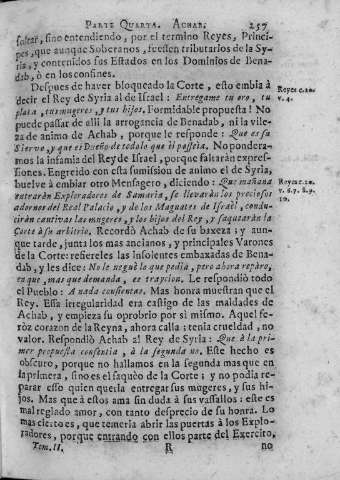 PARTE QUARTA. ACHAB. 257
saltar, sino entendiendo, por el termino Reyes, Princi-
pes, que aunque Soberanos, fuessen tributarios de la Sy-
ria, y contenidos sus Estados en los Dominios de Bena-
dab, ò en los confines.
Despues de haver bloqueado la Corte, esto embia à
decir el Rey de Syria al de Israel: Entregame tu oro, tu
plata, tus mugeres, y tus hijos. Formidable propuesta! No
puede passar de alli la arrogancia de Benadab, ni la vile-
za de animo de Achab, porque le responde: Que es su
Siervo, y que es Dueño de todo lo que èl possèia. No pondera-
mos la infamia del Rey de Israel, porque faltaràn expres-
siones. Engreido con esta sumission de animo el de Syria,
buelve à embiar otro Mensagero, diciendo: Que mañana
entraràn Exploradores de Samaria, se llevaràn los preciosos
adornos del Real Palacio, y de los Magnates de Israèl, condu-
ciràn cautivas las mugeres, y los hijos del Rey, y saquearàn la
Corte à su arbitrio. Recordò Achab de su baxeza; y aun-
que tarde, junta los mas ancianos, y principales Varones
de la Corte: refiereles las insolentes embaxadas de Bena-
dab, y les dice: No le neguè lo que pedia, pero ahora reparo,
en que, mas que demanda, es traycion. Le respondiò todo
el Pueblo: A nada consientas. Mas honra muestran que el
Rey. Essa irregularidad era castigo de las maldades de
Achab, y empieza su oprobrio por sì mismo. Aquel fe-
ròz corazon de la Reyna, ahora calla: tenia crueldad, no
valor. Respondiò Achab al Rey de Syria: Que à la pri-
mer propuesta consentia, à la segunda no. Este hecho es
obscuro, porque no hallamos en la segunda mas que en
la primera, sino es el saquèo de la Corte; y no podia re-
parar esso quien queria entregar sus mugeres, y sus hi-
jos. Mas que à estos ama sin duda à sus vassallos: este es
mal reglado amor, con tanto desprecio de su honra. Lo
mas cierto es, que temeria abrir las puertas à los Explo-
radores, porque entrando con ellos parte del Exercito,
Tom. II. R no
Reyes c. 20.
v. 4.
Reyes c. 20.
v. 6. 7. 8. 9.
10.